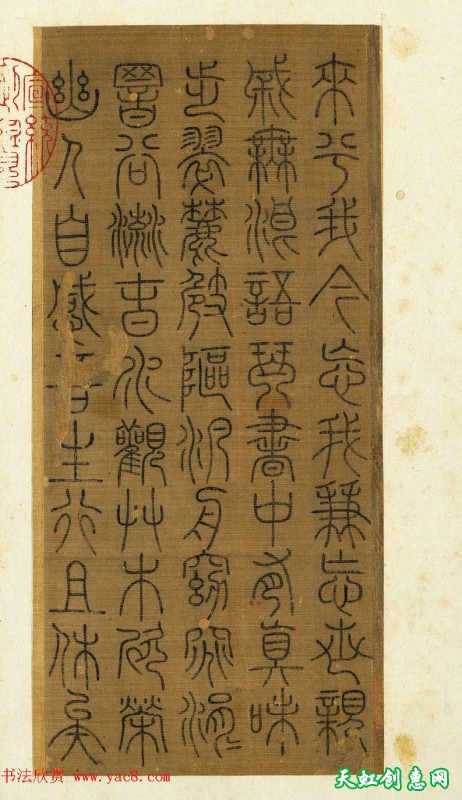 來兮我今忘我兼忘世親
戚無浪語琴書中有真味
步翠麓崎嶇汎舟窈窕涓
暗谷流春水觀草木欣榮
幽人自感吾生行且休矣
书法欣赏 www.yac8.com
天虹创惠网